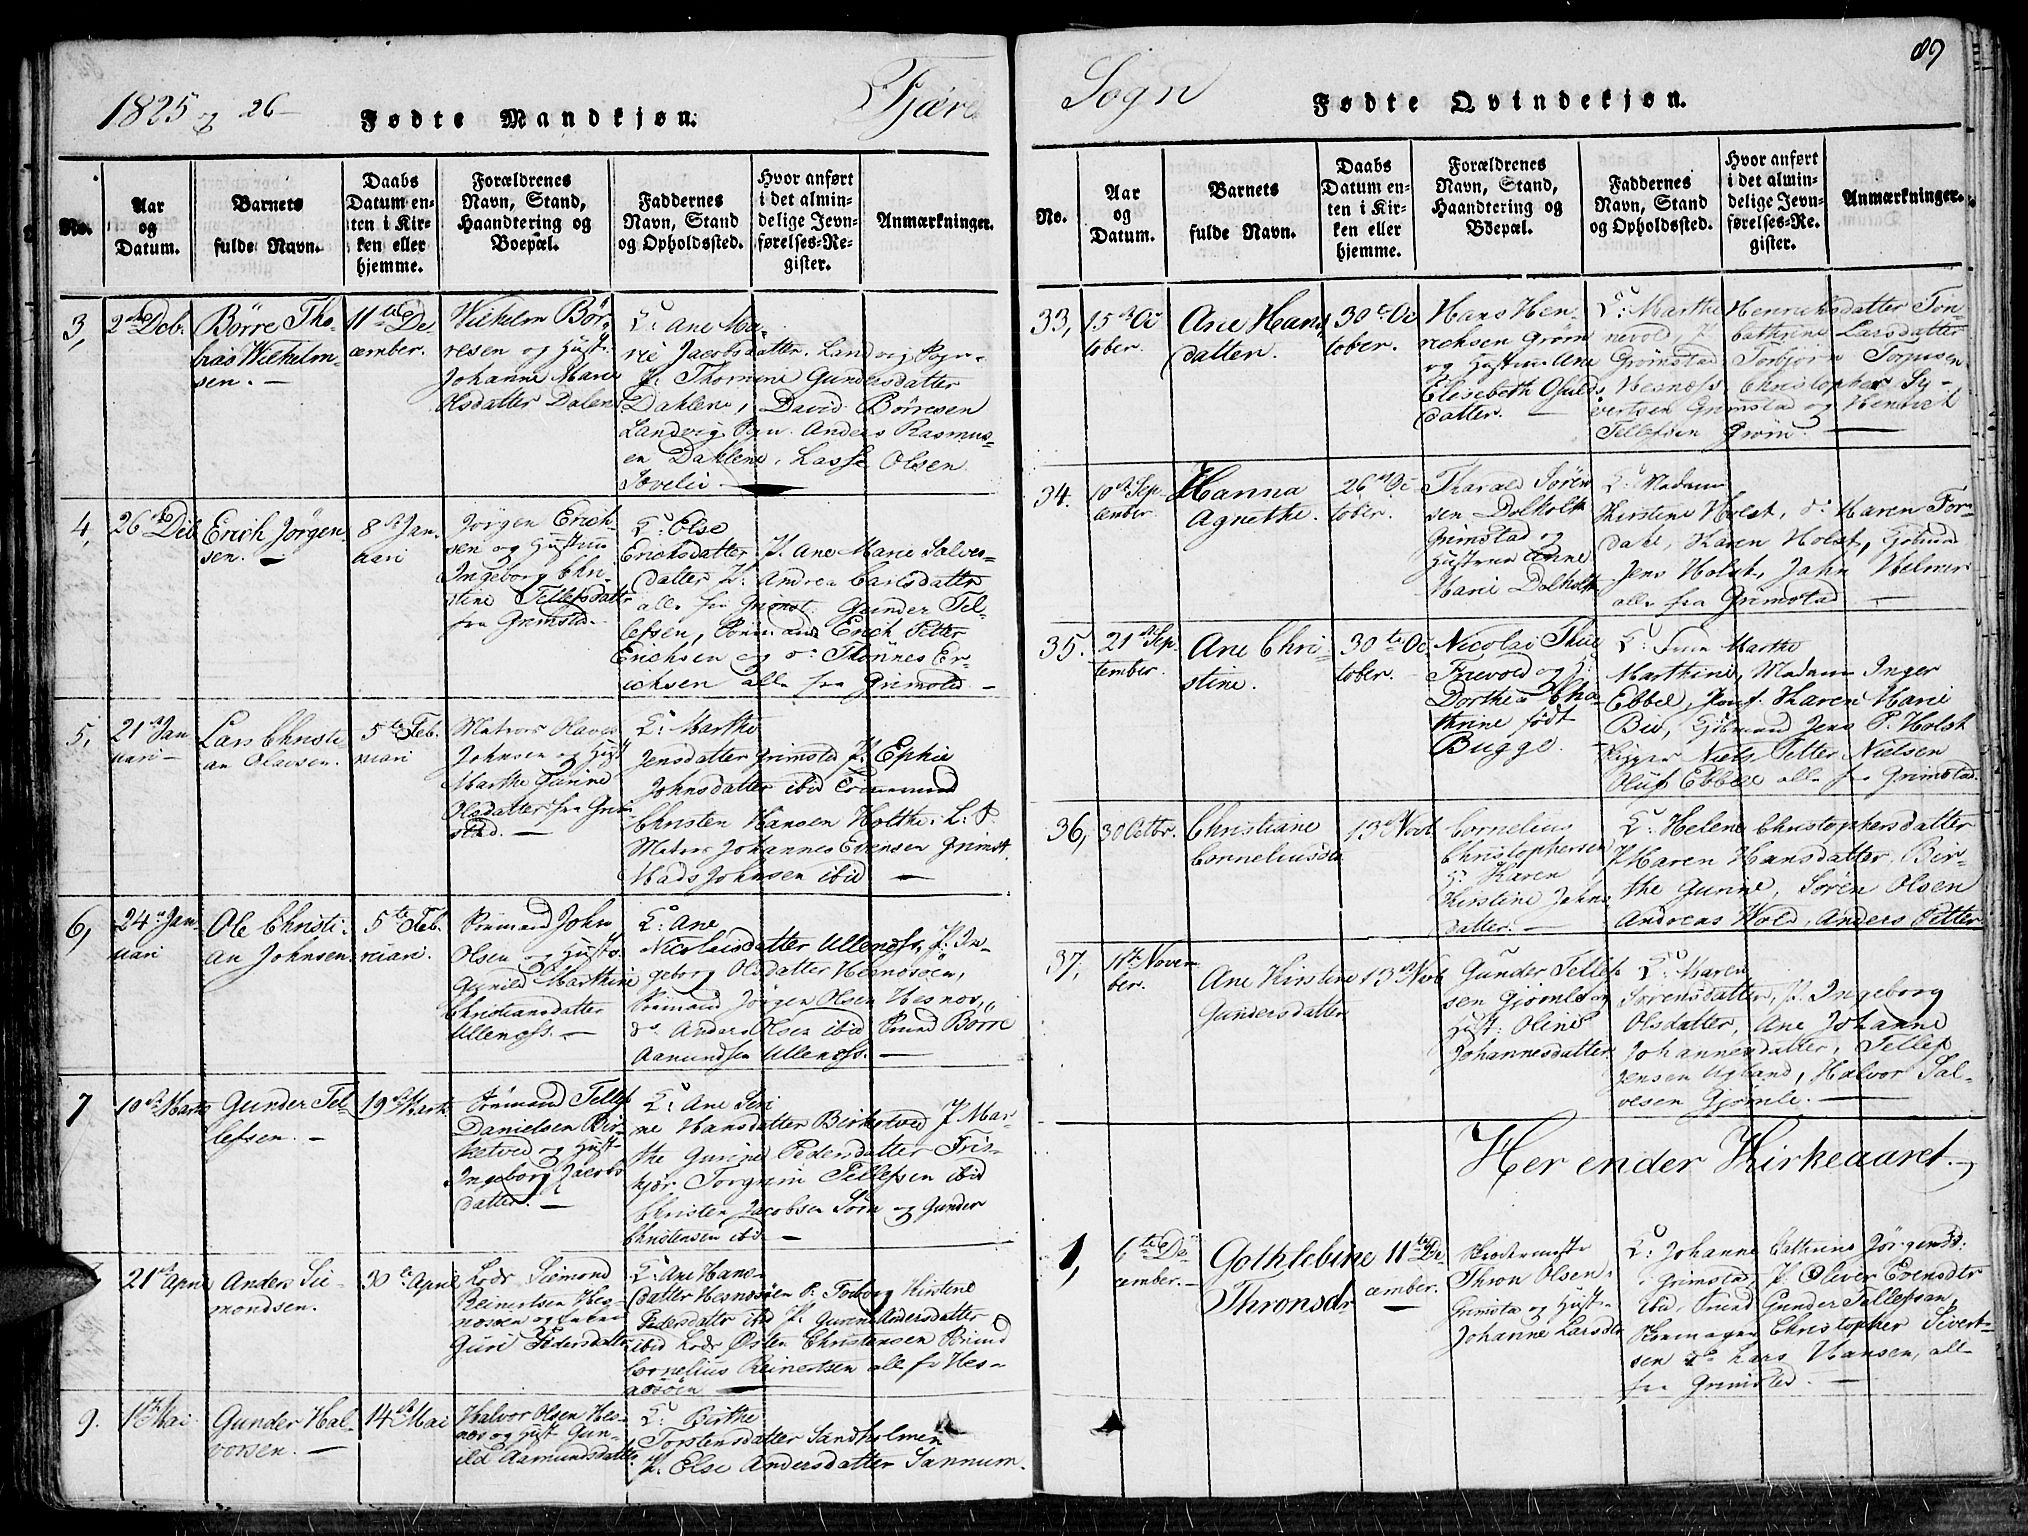 1825 og 26
Fødte Mandkjøn.
Fjære
No.
Aar og Datum.
Barnets fulde Navn.
Daabs Datum enten i Kirken eller hjemme.
Forældrenes Navn, Stand, Haandtering og Boepæl.
Faddernes Navn, Stand og Opholdssted.
Hvor anført i det almindelige Jevnførelses-Register.
Anmærkninger.
3,
2den Deb.
Børre Tho-
bias Wilhelm-
sen. —
11te De
cember.
Wilhelm Bør-
resen og Hust.
Johanne Marie
Olsdatter Dalene
Q: Ane Ma-
rie Jacobsdatter. Landvig Sogn.
P. Thomine Gundersdatter
Dahlene, David Børresen
Landvig Sogn. Anders Rasmus-
en Dahlene, Lasse Olsen
4,
26de Deb
Erich Jörgen
sen. —
8de Jan
uari
Jörgen Erich-
sen og Hustrue
Ingeborg Chri-
stine Tellefsdatter
fra Grimstad.
Q: Else
Erichsdatter, P. Ane Marie Salves-
datter P. Andrea Carlsdatter
alle fra Grimst. Gunder Tel-
lefsen, Sømand Erich Petter
Erichsen og do Thonnes Er-
ichsen alle fra Grimstd —
5,
21de Jan
uari —
Lars Christi
an Olavsen.
5te Feb.
ruari
Matros Olaves
Johnsen og Hust
Marthe Gurine
Olsdatter fra Grim
stad. —
Q: Marthe
Jensdatter Grimstd P. Ephie
Johnsdatter ibid
Christen Hansen Holthe
Matros Johannes Evensen Grimst.
Mads Johnsen ibid —
6,
24de Jan
uari
Ole Christi-
an Johnsen
5te Feb.
ruari.
Sømand John
Olsen og Hust.
Gunild Marthine
Christiansdatter
Ullenæss. —
Q: Ane
Nicolaisdatter Ullenæss, P. In-
geborg Olsdatter Hesnæsøen,
Sømand Jörgen Olsen Hesnæs,
do Anders Olsen ibid Smed Börre
Aamundsen Ullenæss. —
7
10de Marts
Gunder Tel-
lefsen. —
19de Marts
Sømand Tellef
Danielsen Bir-
ketved og Hust-
Ingeborg Jacobs
datter. —
Q: Ane Seri
ne Hansdatter Birketved P Mar-
the Gurine Pedersdatter Fris-
kjær Torgrim Tellefsen ibid
Christen Jacobsen Søm og Gunder
Christensen ibid —
21de April
Anders Sie-
mondsen.
30te April
Lods Siemond
Reinertsen Hes-
Guri Pedersdatter
Q: Ane Hans-
datter Hesnæsöen P.
Pedersdatter ibid P. Gurine Andersdatter
ibid Lods Østen Christensen
Cornelius Reinertsen alle fr Hes-
næsøen —
9.
1ste Mai
Gunder Hal-
vorsen. —
14de Mai
Halvor Olsen Hes-
næs og Hust Gun-
ild Aamundsdatter
Q: Birthe
Torstensdatter Sandholmen
P. Else Andersdatter Sannum.
Sogn
89
Fødte Qvindekjøn.
No.
Aar og Datum.
Barnets fulde Navn.
Daabs Datum enten i Kirken eller hjemme.
Forældrenes Navn, Stand, Haandtering og Boepæl.
Faddernes Navn, Stand og Opholdssted.
Hvor anført i det almindelige Jevnførelses-Register.
Anmærkninger.
33,
15de Oc
tober.
Ane Hans
datter.
30te Oc
tober.
Hans Hen-
richsen Grøm
og Hustrue Ane
Elisebeth Osulds
datter. —
Q: Marthe Henrichsdatter Ton-
nevold, P. Cathrine Larsdatter
Grömstad Torbjörn Torjusen
Hesnæss, Christopher Sy-
vertsen Grimstad og Henrich
Tellefsen Grøm. —
34.
10de Sep-
tember.
Hanna
Agnethe.
26de Oc
tober.
Tharald Sören
sen Dolholt
Grimstad og
Hustrue Anne
Marie Dolholt
Q: Madam
Kirstine Holst, do Maren For-
dahl, Karen Holst,
Jens Holst, John Helmer
alle fra Grimstad —
35.
21de Sep
tember.
Ane Chri-
stine.
30te Oc
tober.
Nicolai Thue
Frevold og H:
Dorthea Cha-
thrine født
Bugge.
Q: Marthe
Marthine, Madam Inger
Ebbel, Jomf. Karen Marie
Bie, Jens P. Holst
Niels Petter Nielsen
Oluf Ebbel alle fra Grimstad.
36,
30 Octbr.
Christiane
Corneliusda
13de Novb
Cornelius
Christophersen
H: Karen
Kirstine Johns
datter. —
Q: Helene Christophersdatter
P Maren Hansdatter. Bir-
the Gurine, Sören Olsen
Andreas Wold, Anders Petter
37,
11te Novem
ber.
Ane Kirstine
Gundersdatter
13de Novb
Gunder Tellef
sen Gjömle og
Hust: Oline
Johannesdatter
Q: Maren
Sörensdatter, P. Ingeborg
Olsdatter, Ane Johanne
Johannesdatter, Tellef
Jensen Ugland, Halvor Sal-
vesen Gjömle. —
Her ender Kirkeaaret.
1,
6te De-
cember. —
Gothlebine
Thronsdr
11te De
cember.
Thron Olsen
Grimsta og Hust
Johanne Larsdtr
Q: Johanne Cathrine Jörgensd:
i Grimstad, P. Oliver Evensdtr
ibid, Smed Gunder Tellefsen,
Christopher Sivert-
sen do Lars Hansen, alle
fra Grimstad. —